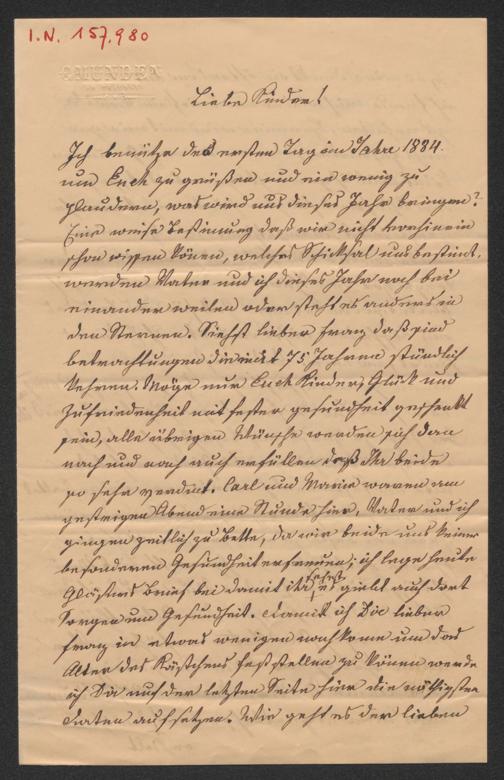 I.N. 157.980
GMUNDEN
Liebe Kinder!
Ich benütze den ersten Tag im Jahre 1884.
um Euch zu grüßen und ein wenig zu
plaudern, was wird uns dieses Jahr bringen?
Eine weise Bestimmung daß wir nicht vorhinein
schon wissen könen, welches Schicksal uns bestimt,
werden Vater und ich dieses Jahr noch bei
einander weilen oder steht es anders in
den Sternen. Siehst lieber Franz daß sind
betrachtungen die mit 75 Jahren stündlich
kehren. Möge nur Euch Kinder, Glück und
Zufriedenheit mit fester gesundheit geschenkt
sein, alle übrigen Wünsche werden sich dan
nach und nach auch erfüllen daß Ihr beide
so sehr verdint. Carl und Marie waren am
gestrigen Abend eine Stunde hier, Vater und ich
gingen zeitlich zu Bette, da wir beide uns keiner
besonderen Gesundheit erfreuen; ich lege heute
Brief bei damit ihr sehet es giebt auch dort
Sorgen um Gesundheit. Damit ich Dir lieber
Franz in etwas wenigen nachkome um das
Alter des Kästchens feststellen zu könen werde
ich Dir auf der letzten Seite hier die nöthigsten
Daten aufsetzen. Wie geht es der lieben